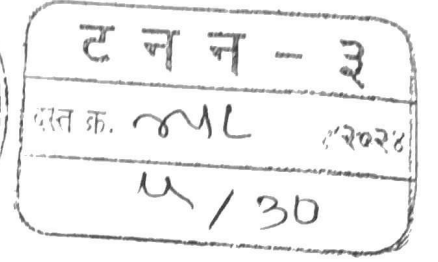 ट न न - ३
दस्त क्र. /२०२४
५ / 30